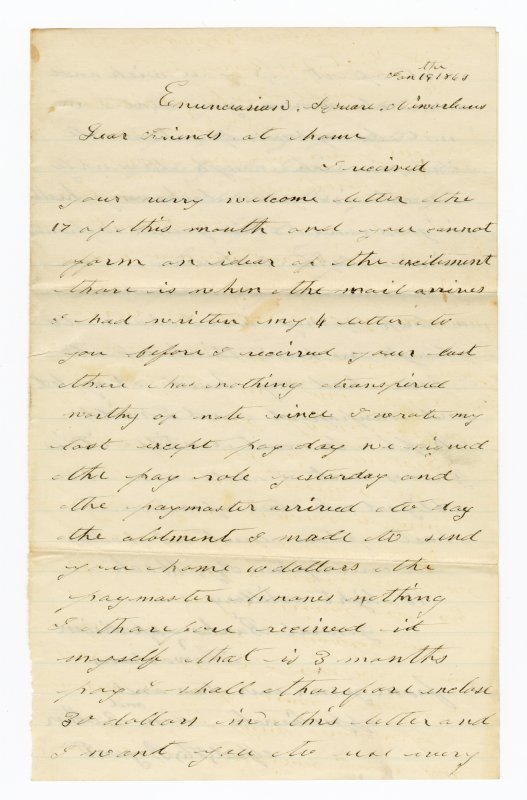 Jan 19 the 1863
Enunciasian. Square. Niworleans
Dear Friends at home
I recieved
your verry welcome letter the
17 of this month and you cannot
form an idear of the excitement
thare is when the mail arrives
I had written my 4 letter to
you before I recieved your last
thare has nothing transpired
worthy of note since I wrote my
last except pay day we signed
the pay role yestarday and
the paymaster arrived to day
the alotment I made to send
you home 10 dollars the
paymaster knows nothing
I tharefore recieved it
myself that is 3 months
pay I shall tharefore enclose
30 dollars in this letter and
I want you to use every